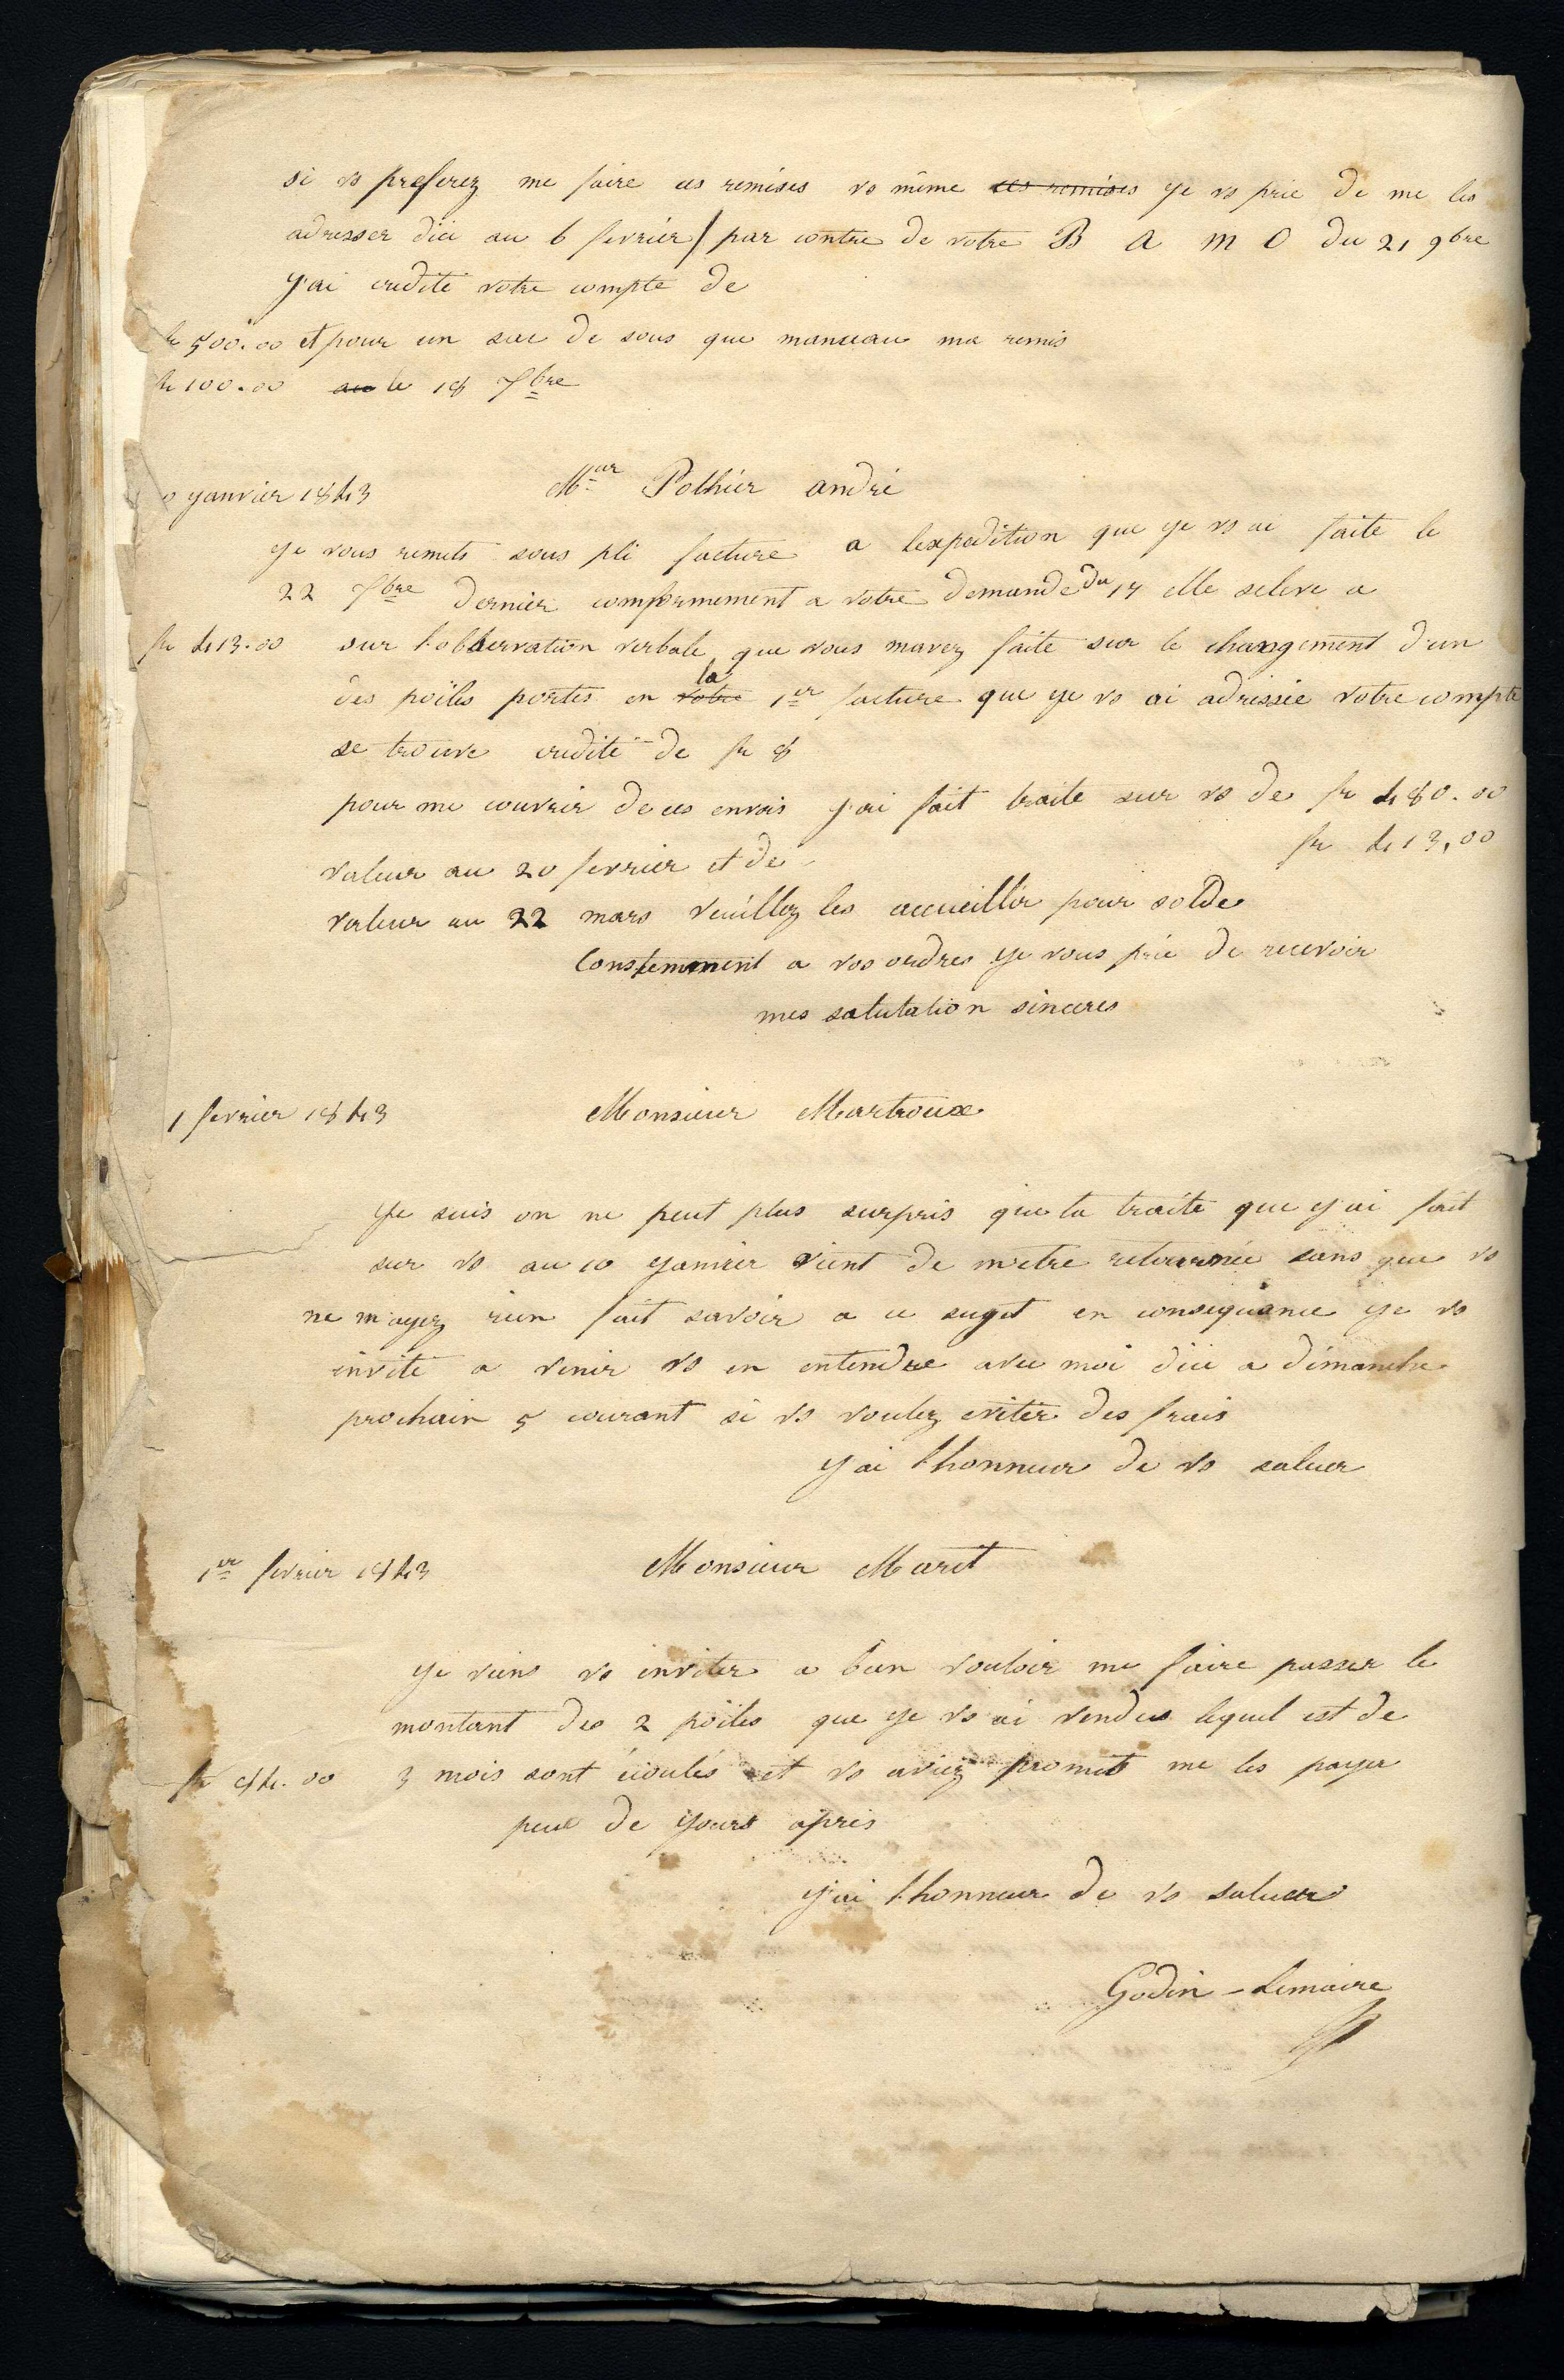 si vs preferez me faire ces remises vs même ces remises je vs prie de me les
adresser dici au 6 fevrier / par contre de votre B A M O du 21 9bre
j'ai credité votre compte de
fr 500.00 et pour un sac de sous que manceau ma remis
fr 100.00 au le 18 7bre
janvier 1843 Mr Pothier andré
je vous remets sous pli facture a lexpedition que je vs ai faite le
22 7bre dernier comformement a votre demande du 17 elle seleve a
fr 413.00 sur l'observation verbale que vous mavez faite sur le changement d'un
des poëles portes en votre la 1er facture que je vs ai adressée votre compte
se trouve credité de fr 8
pour me couvrir de ces envois j'ai fait traite sur vs de fr 480.00
valeur au 20 fevrier et de fr 413,00
valeur au 22 mars veuillez les accueillir pour solde
Constemment a vos ordres je vous prie de recevoir
mes salutation sinceres
1 fevrier 1843 Monsieur Martroux
Je suis on ne peut plus surpris que la traite que j'ai fait
sur vs au 10 janvier vient de m'etre retournée sans que vs
ne m'ayez rien fait savoir a ce suget en consequance je vs
invite a venir vs en entendre avec moi d'ici a dimanche
prochain 5 courant si vs voulez eviter des frais
j'ai l'honneur de vs saluer
1er fevrier 1843 Monsieur Maret
je viens vs inviter a bien vouloir me faire passer le
montant des 2 poëles que je vs ai vendus lequel est de
fr 84.00 3 mois sont écoulés et vs aviez promit me les payer
peu de jours apres
j'ai l'honneur de vs saluer
Godin-Lemaire